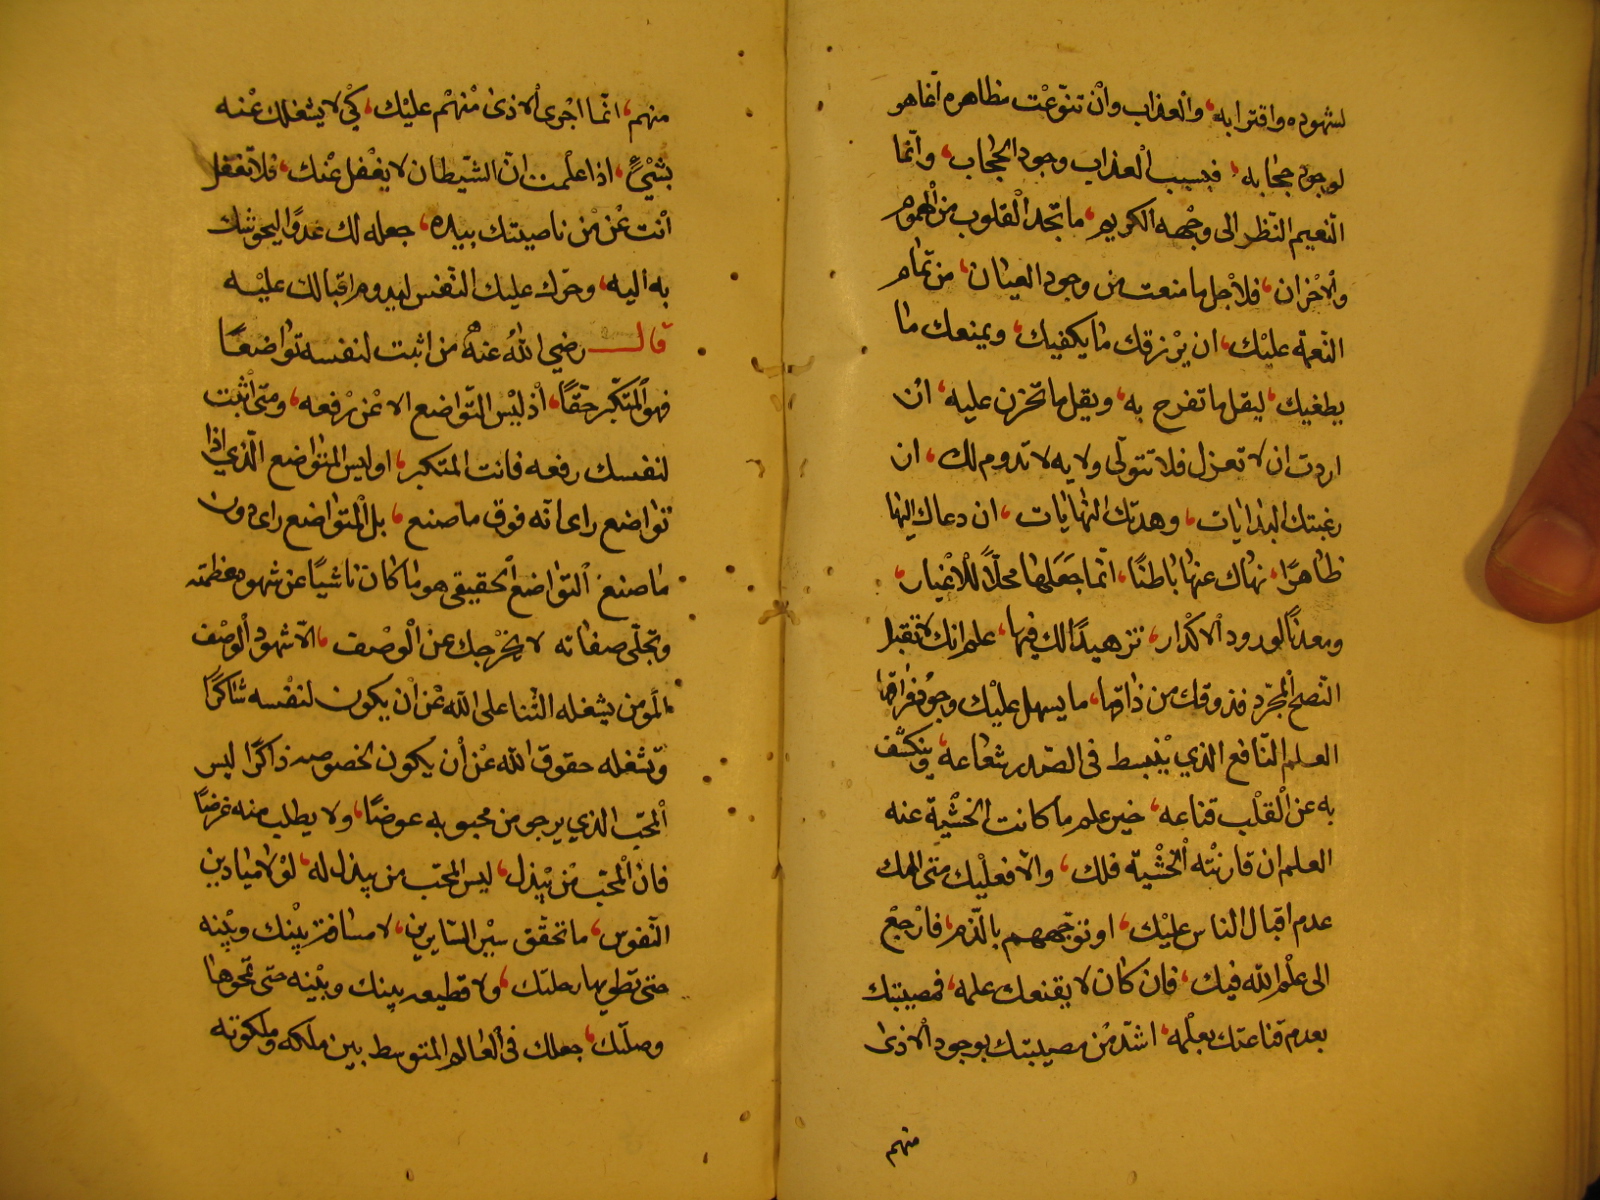 لشهوده واقترابه، والعذاب وان تنوّعت مظاهره انّما هو
لوجود حجابه، فسبب العذاب وجود الحجاب، وانّما
النّعيم النّظر الى وجهه الكريم، ما تجد القلوب من الهموم
والاحزان، فلاجل ما منعت من وجود العيان، من تمام
النّعمة عليك، ان يرزقك ما يكفيك، ويمنعك ما
يطغيك، ليقل ما تفرح به، ويقل ما تحزن عليه، ان
اردت ان لا تعزل فلا تتولّى ولايه لا تدوم لك، ان
رغبتك البدايات، وهدتك النهايات، ان دعاك اليها
ظاهرًا، نهاك عنها باطنًا، انّما جَعَلها محلّاً للاغيار،
ومعدنًا لورود الاكدار، تزهيدًا لك فيها، علم انك لا تقبل
النّصح المجّرد فذوقك من ذاقها، ما يسهل عليك وجود فراقها
العلم النّافع الذي ينبسط فى الصّدر شعاعه، وينكشف
به عن القلب قناعه، خير علم ما كانت الخشية عنه
العلم ان قارنته الخشية فلك، والّا فعليك متى المك
عدم اقبال الناس عليك، او توجّههم بالذّم، فارجع
الى علم الله فيك، فان كان لا يقنعك علمه، فمصيبتك
بعدم قناعتك بعلمه، اشدّ من مصيبتك بوجود الاذى
منهم
منهم، انّما اجرى الاذى منهم عليك، كي لا يشغلك عنه
بشيءٍ، اذا علمت انّ الشّيطان لا يغفل عنك، فلا تغفل
انت عن من ناصيتك بيده، جعله لك عدوًّا ليحوشك
به اليه، وحرّك عليك النّفس ليدوم اقبالك عليه
قال رضي اللهُ عنهُ من اثبت لنفسه تواضعًا
فهو المتكبّر حقًّا، اذ ليس التّواضع الا عن رفعه، ومتى اثبت
لنفسك رفعه فانت المتكبر، او ليس المتواضع الّذي اذا
تواضع راى انّه فوق ما صنع، بل المتواضع راى دون
ما صنع التواضع الحقيقى هو ما كان ناشيًا عن شهود عظمته
وتجلّى صفاته لا يخرجك عن الوصف، الّا شهود الوصف
المومن يشغله الثّنا على الله عن ان يكون لنفسه شاكرًا
وتشغله حقوق الله عن أن يكون لحضوضه ذاكرًا ليس
المحبّ الذي يرجو من محبوبه عوضًا، ولا يطلب منه غرضًا
فان المحبّ من يبذل، ليس المحبّ من يبذل له، لولا ميادين
النّفوس، ما تحقّق سير السّايرين، لا مسافة بينك وبينه
حتى تطويها رحلتك، ولا قطيعه بينك وبينه حتى تمحوها
وصلتك، جعلك فى العالم المتوسط بين ملكه وملكوته